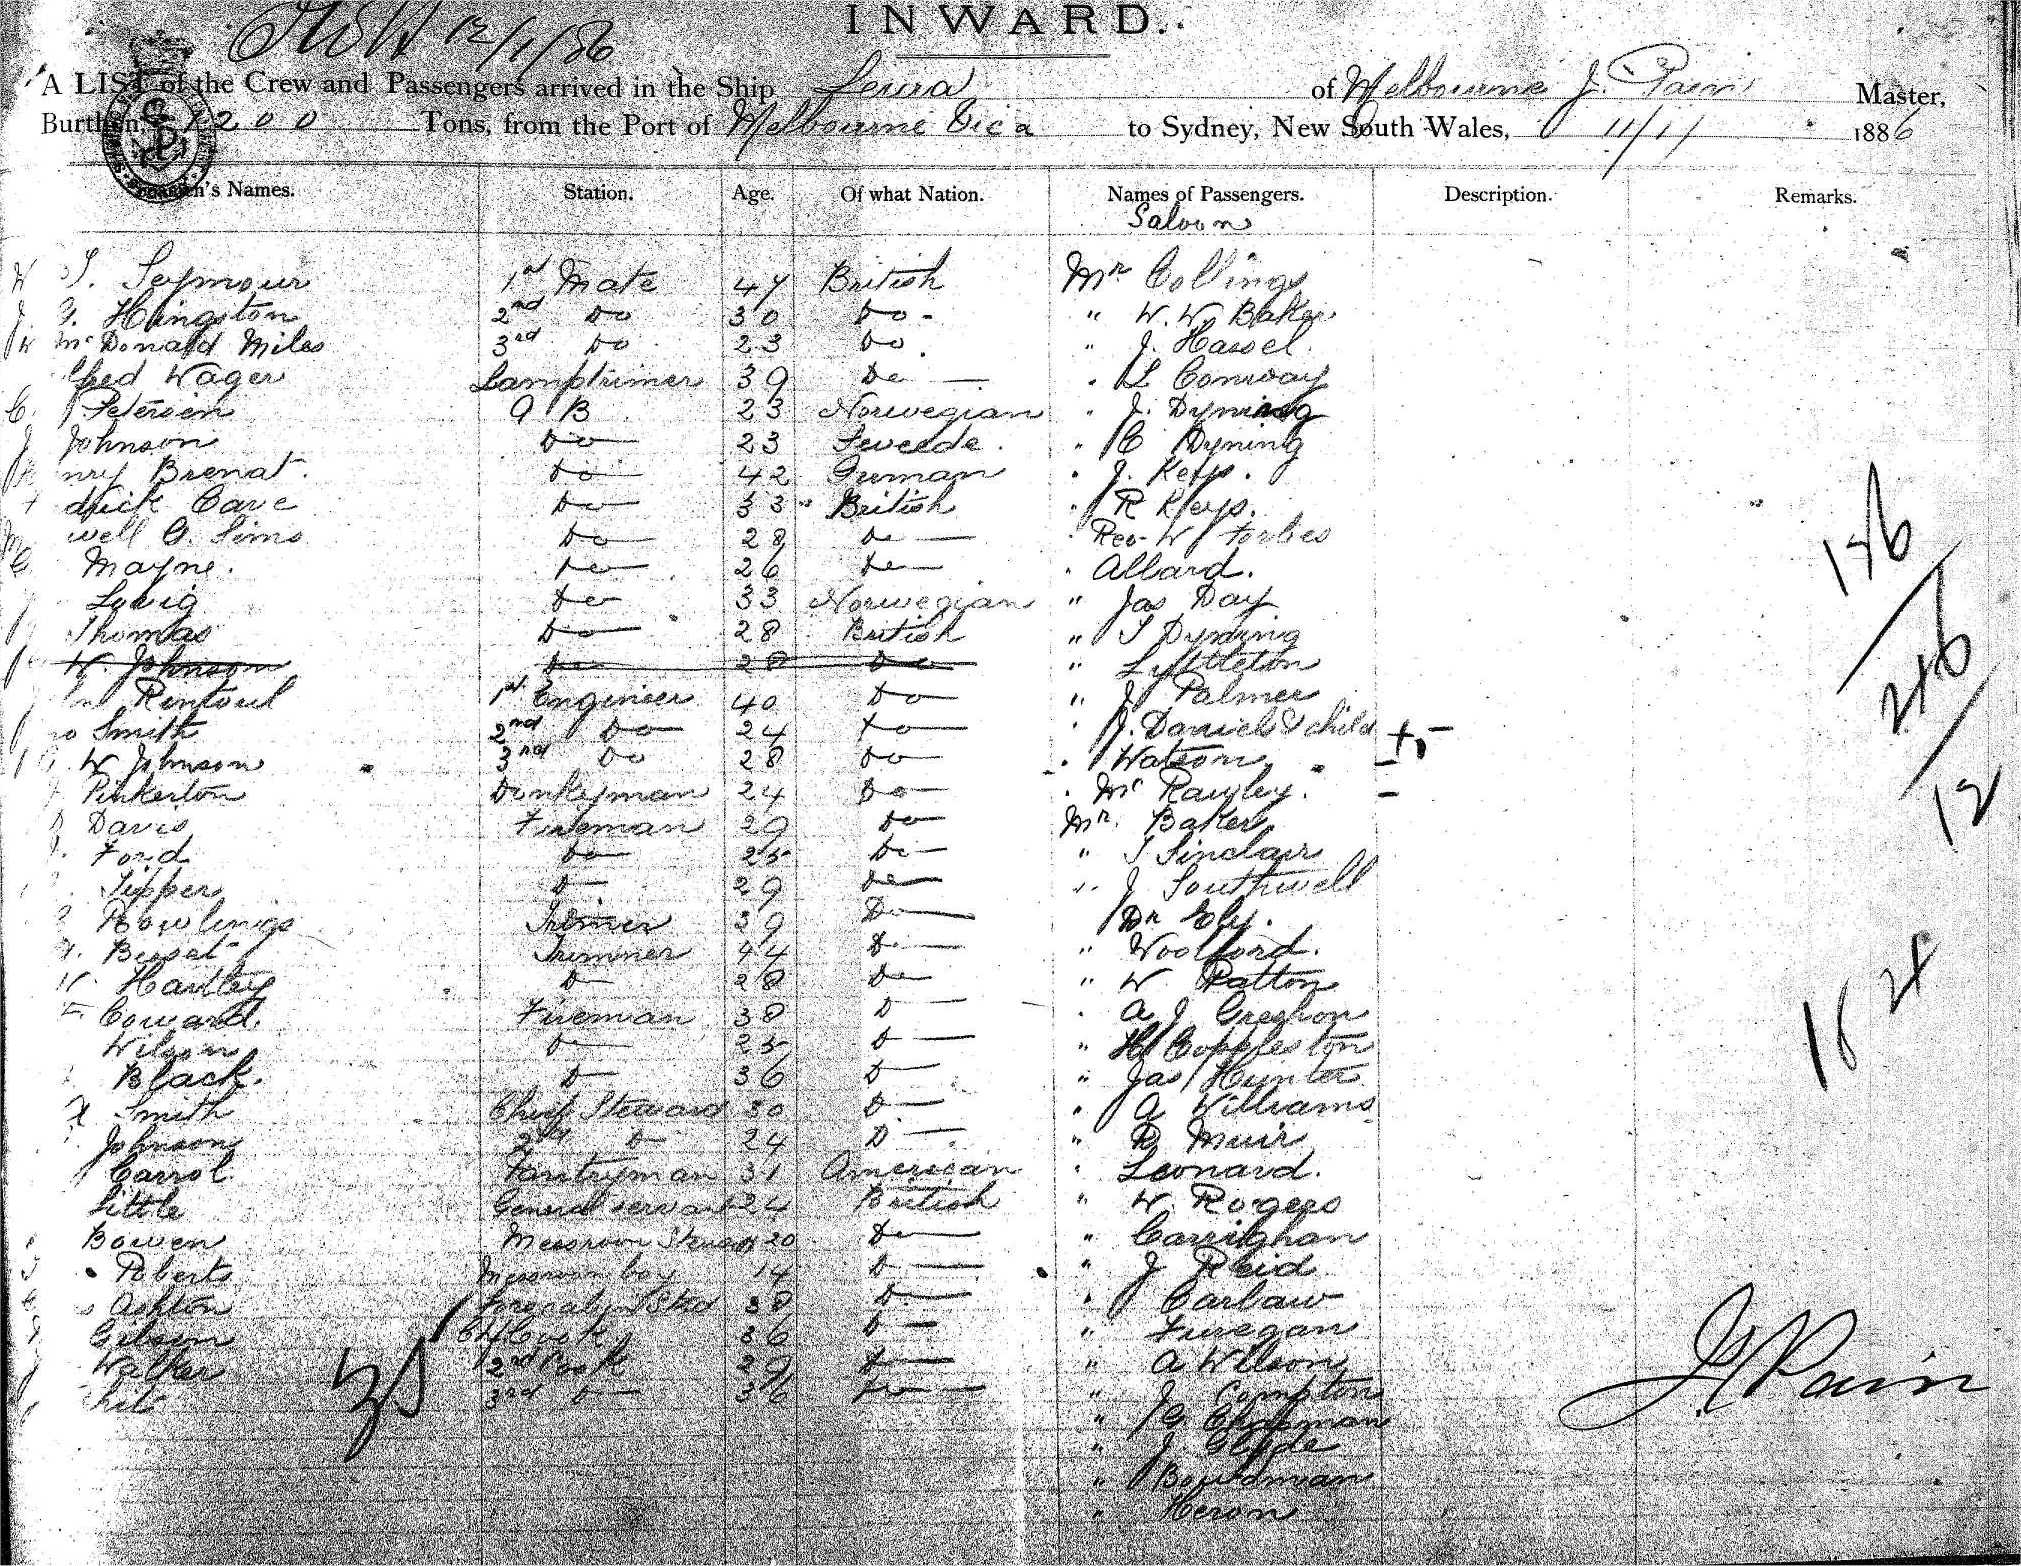 12/1/86
INWARD.
A LIST of the Crew and Passengers arrived in the Ship Leura of Melbourne J. Pain Master,
Burthen 1200 Tons, from the Port of Melbourne Vica to Sydney, New South Wales, 11/1/ 1886
's Names. Station. Age. Of what Nation. Names of Passengers. Description. Remarks.
Saloon
Seymour 1st Mate 47 British Mr Collings
Hingston 2nd Do 30 Do " W. W. Baker
Mc Donald Miles 3rd Do 23 Do " J. Hassel
fred Wager Lamptrimer 39 Do " L Conway
C. Petersen A B 23 Norwegian " J. Dyning
J Johnson Do 23 Sweede " C Dyning
nry Brenat Do 42 German " J. Keys.
drick Cave Do 33 " British " R Keys.
well G. Sims Do 28 Do Rev. W Forbes
C Mayne. Do 26 Do " Allard.
Ludig Do 33 Norwegian " Jas Day
Thomas Do 28 British " T Dyning
W. Johnson Do 28 Do " Lyttleton
Rintoul 1st Engineer 40 Do " J Palmer
Smith 2nd Do 24 Do " J. Daniel & child
W Johnson 3rd Do 28 Do " Watson
Pinkerton Donkeyman 24 Do " Mr Rawley.
Davis Fireman 29 Do Mr. Baker
Ford Do 25 Do " T Sinclair
Tipper Do 29 Do " J Southwell
Rowlings Trimer 39 Do Dr Ely.
Bisset Trimmer 44 D " Woolford.
Hartley D 28 Do " W Patton
Coward. Fireman 38 D " A J Greshon
Wilson D 25 D " H Coppleston
Black. D 36 D " Jas Hunter
Smith Chief Steward 30 D " A Williams
Johnson 2nd D 24 D " R Muir
Carrol Pantryman 31 American " Leonard.
Little General servant 24 British " W. Rogers
Bowen Messroom Steward 20 Do " Carrighan
Roberts Messroom boy 14 D " J Reid
Ashton 38 D " Carlaw
Gibson Cf Cook 36 D " Finegan
Walker 2nd Cook 29 D " A Wilson
3rd D 36 Do " J Compton
" G Chapman
" J. Clyde
" Bowdman
" Heron
146
246
12
18
24
J. Pain